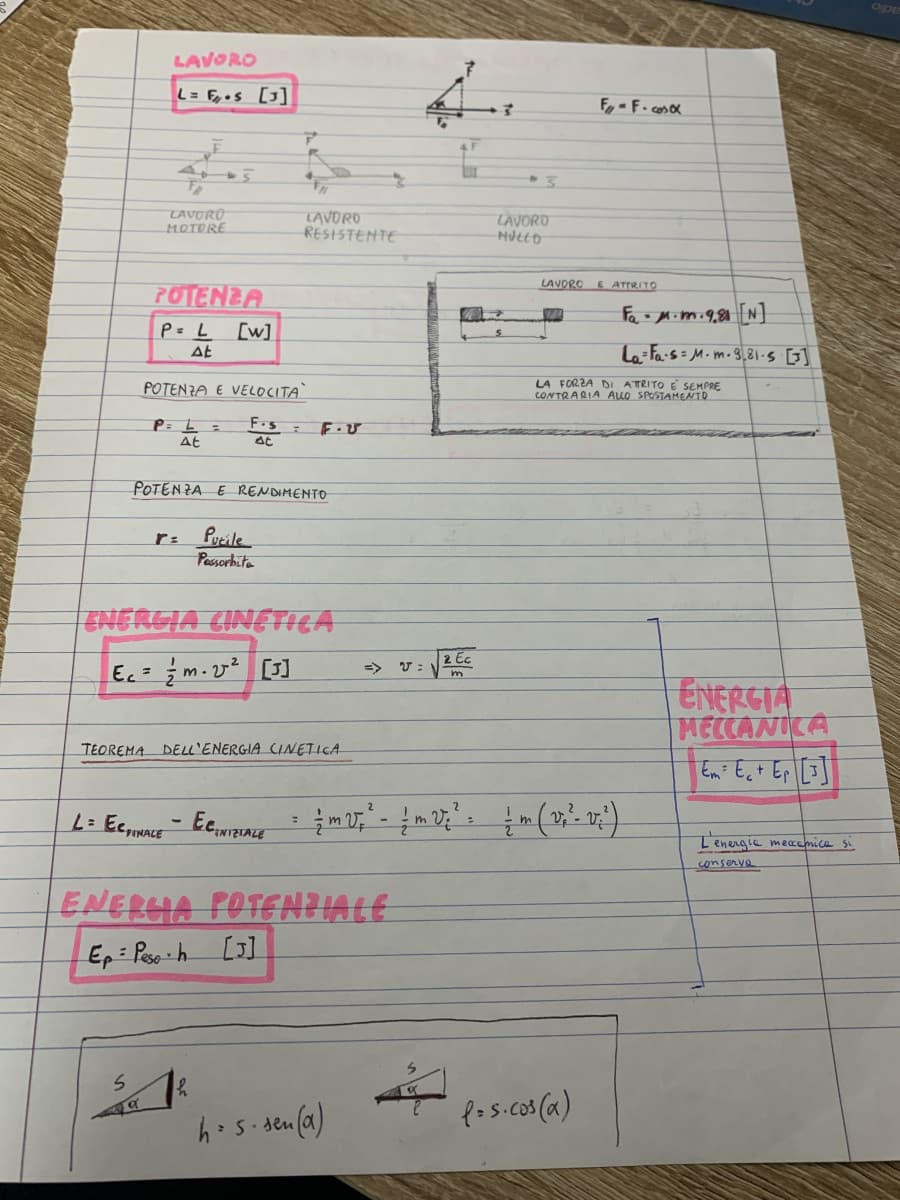 LAVORO
L = F∥ • s [J]
F⃗
α
s⃗
F∥
F∥ = F • cosα
F⃗
s⃗
F∥
F⃗
s⃗
F∥
F⃗
s⃗
LAVORO MOTORE
LAVORO RESISTENTE
LAVORO NULLO
POTENZA
P = L/Δt [W]
POTENZA E VELOCITÀ
P = L/Δt = F•s/Δt = F • v
LAVORO E ATTRITO
s
Fa = μ • m • 9,81 [N]
La = Fa • s = μ • m • 9,81 • s [J]
LA FORZA DI ATTRITO È SEMPRE
CONTRARIA ALLO SPOSTAMENTO
POTENZA E RENDIMENTO
r = Putile/Passorbita
ENERGIA CINETICA
Ec = 1/2 m • v² [J] => v = √(2 Ec/m)
TEOREMA DELL'ENERGIA CINETICA
L = Ec FINALE - Ec INIZIALE = 1/2 m vF² - 1/2 m vi² = 1/2 m (vF² - vi²)
ENERGIA POTENZIALE
Ep = Peso • h [J]
ENERGIA
MECCANICA
Em = Ec + Ep [J]
L'energia meccanica si
conserva
s
h
α
h = s • sen(α)
s
α
l
l = s • cos(α)